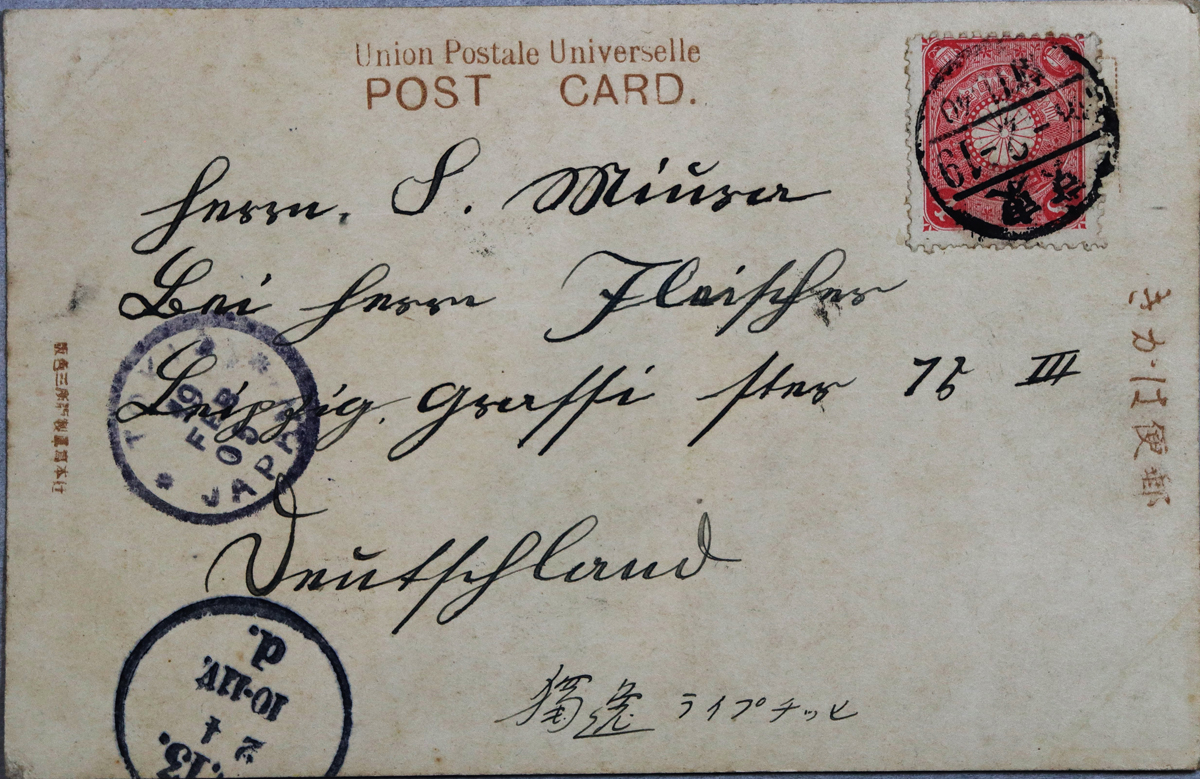 Union Postale Universelle
POST CARD.
Herrn. S. Miura
Bei Herrn Fleischer
Leipzig. Grassi ster 15 III
Deutschland
獨逸 ライプチッヒ
きかは便郵
TOKIO
19
FEB
05
JAPAN
東京
10-11V.
d.